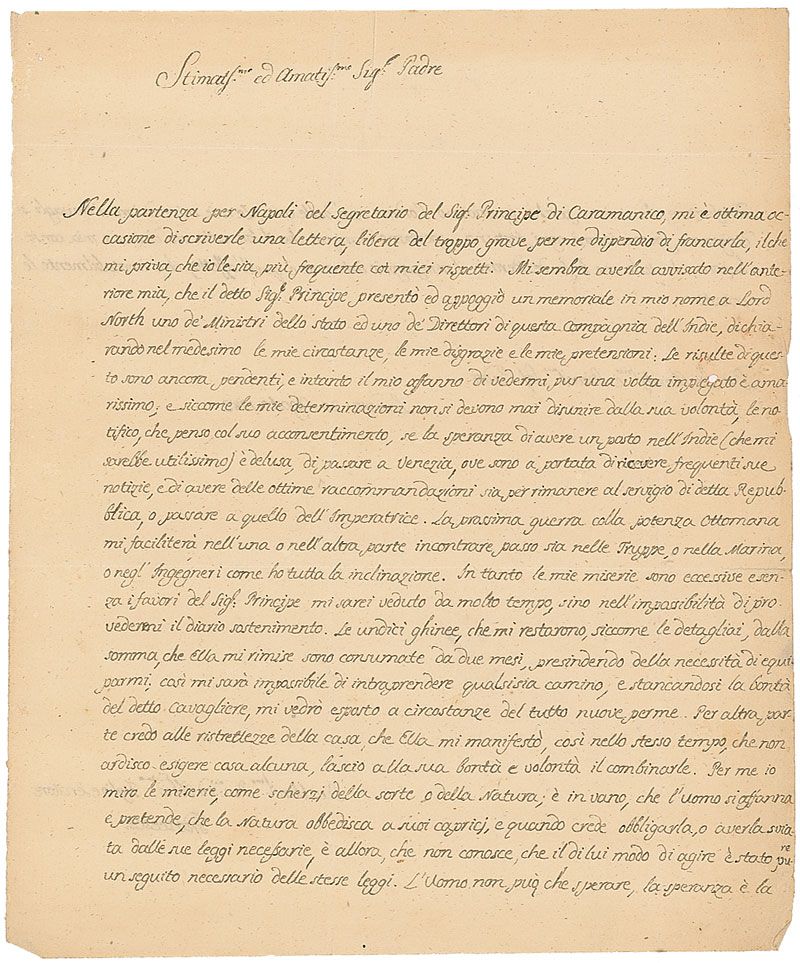 Stimatis.mo ed Amatis.mo Sig.r Padre
Nella partenza per Napoli del segretario del Sig.r Principe di Caramanico, mi è ottima oc-
casione di scriverle una lettera, libera del troppo grave, per me, dispendio di francarla, il che
mi priva, che io le sia, più frequente coi miei rispetti. Mi sembra averla avvisato nell'ante-
riore mia, che il detto Sig.r Principe presentò ed appoggiò un memoriale in mio nome a Lord
North uno de' Ministri dello stato ed uno de' Direttori di questa Compagnia dell'Indie, dichia-
rando nel medesimo le mie circostanze, le mie disgrazie e le mie pretensioi: Le risulte di ques-
to sono ancora pendenti, e intanto il mio affanno di vedermi, pur una volta impiegato è ama-
rissimo; e siccome le mie determinazioni non si devono mai disunire dalla sua volontà, le no-
tifico, che, penso col suo acconsentimento, se la speranza di avere un posto nell'Indie (che mi
sarebbe utilissimo) è delusa, di passare a Venezia, ove sono a portata di ricevere, frequenti sue
notizie, e di avere delle ottime raccommandazioni sia per rimanere al servigio di detta Repub-
blica, o passare a quello dell'Imperatrice. La prossima guerra colla potenza Ottomana
mi faciliterà nell'una o nell'altra parte incontrare, passo sia nelle Truppe, o nella Marina,
o negl' Ingegneri come ho tutta la inclinazione. In tanto le mie miserie sono eccessive e sen-
za i favori del Sig.r Principe mi sarei veduto da molto tempo, sino nell'impossibilità di pro-
vedermi il diario sostenimento. Le undici ghinee, che mi restorono, siccome le detagliai, dalla
somma, che Ella mi rimise sono consumate da due mesi, presindendo della necessità di equi-
parmi, così mi sarà impossibile di intraprendere qualsisia camino, e stancandosi la bontà
del detto Cavagliere, mi vedrò esposto a circostanze del tutto nuove per me. Per altra par-
te credo alle ristrettezze della casa, che Ella mi manifestò, così nello stesso tempo, che non
ardisco esigere cosa alcuna, lascio alla sua bontà e volontà il combinarle. Per me io
miro le miserie, come scherzj della sorte o della Natura; è in vano, che l'uomo si affanna
e pretende, che la Natura obbedisca a suoi capricj, e quando crede obbligarla, o averla svia-
ta dalle sue leggi necessarie, è allora, che non conosce, che il di lui modo di agire è stato pu-re
un seguito necessario delle stesse leggi. L'Uomo non può, che sperare, la speranza è la